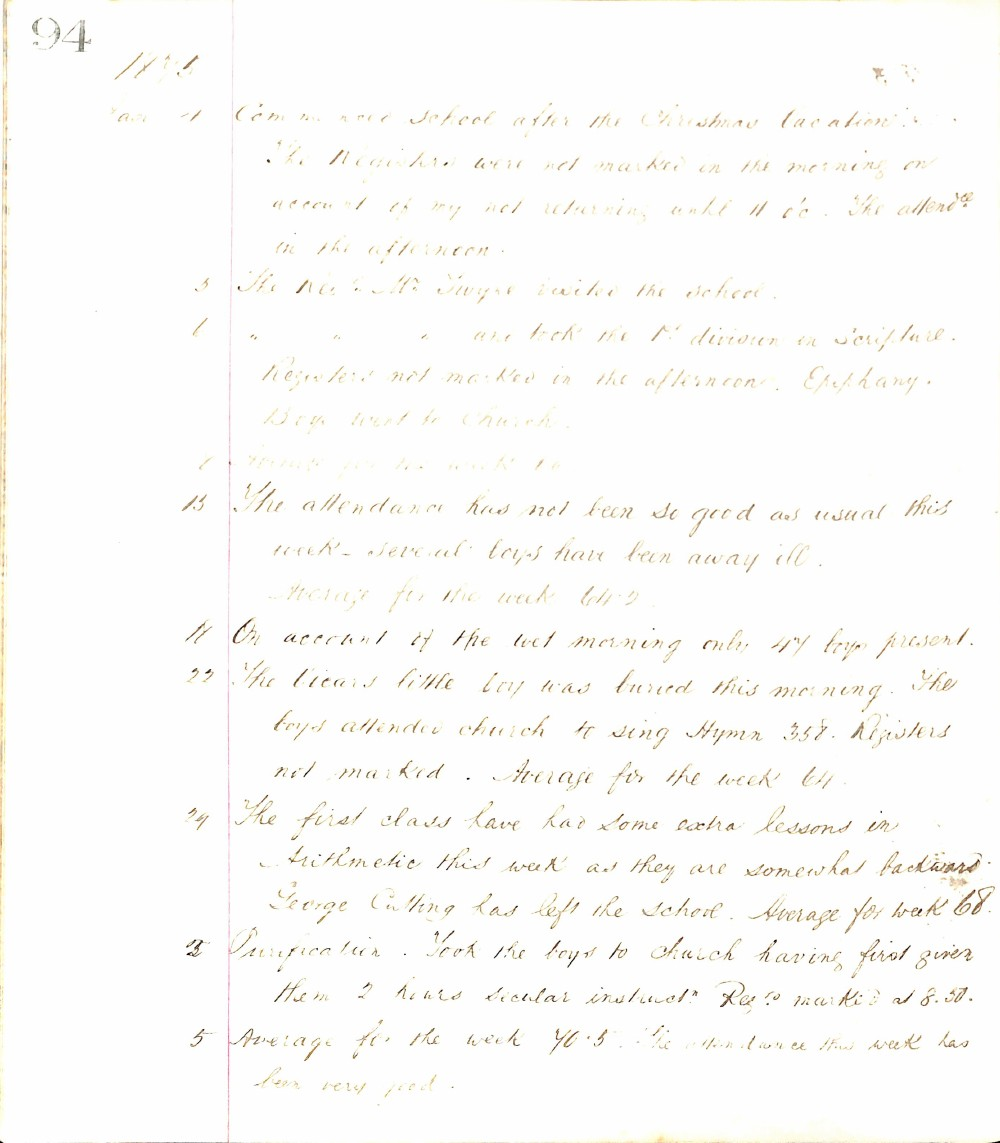 94
Jan 4 Commenced school after the Christmas Vacation.
The Registers were not marked in the morning on
account of my not returning until 11 o'c. The attendce
in the afternoon.
5 The Revd Mr visited the school.
6 " " " and took the 1st division in Scripture.
Registers not marked in the afternoon. Epiphany.
Boys went to Church.
Average for the week
15 The attendance has not been so good as usual this
week - several boys have been away ill.
Average for the week 64.2
On account of the wet morning only 47 boys present.
22 The Vicars little boy was buried this morning. The
boys attended church to sing Hymn 358. Registers
not marked. Average for the week 64.
29 The first class have had some extra lessons in
Arithmetic this week as they are somewhat backward
George Cutting has left the school. Average for week 68.
2 Purification. Took the boys to church having first given
them 2 hours secular instructn Regrs marked at 8.50.
5 Average for the week 70.5. The attendance this week has
been very good.